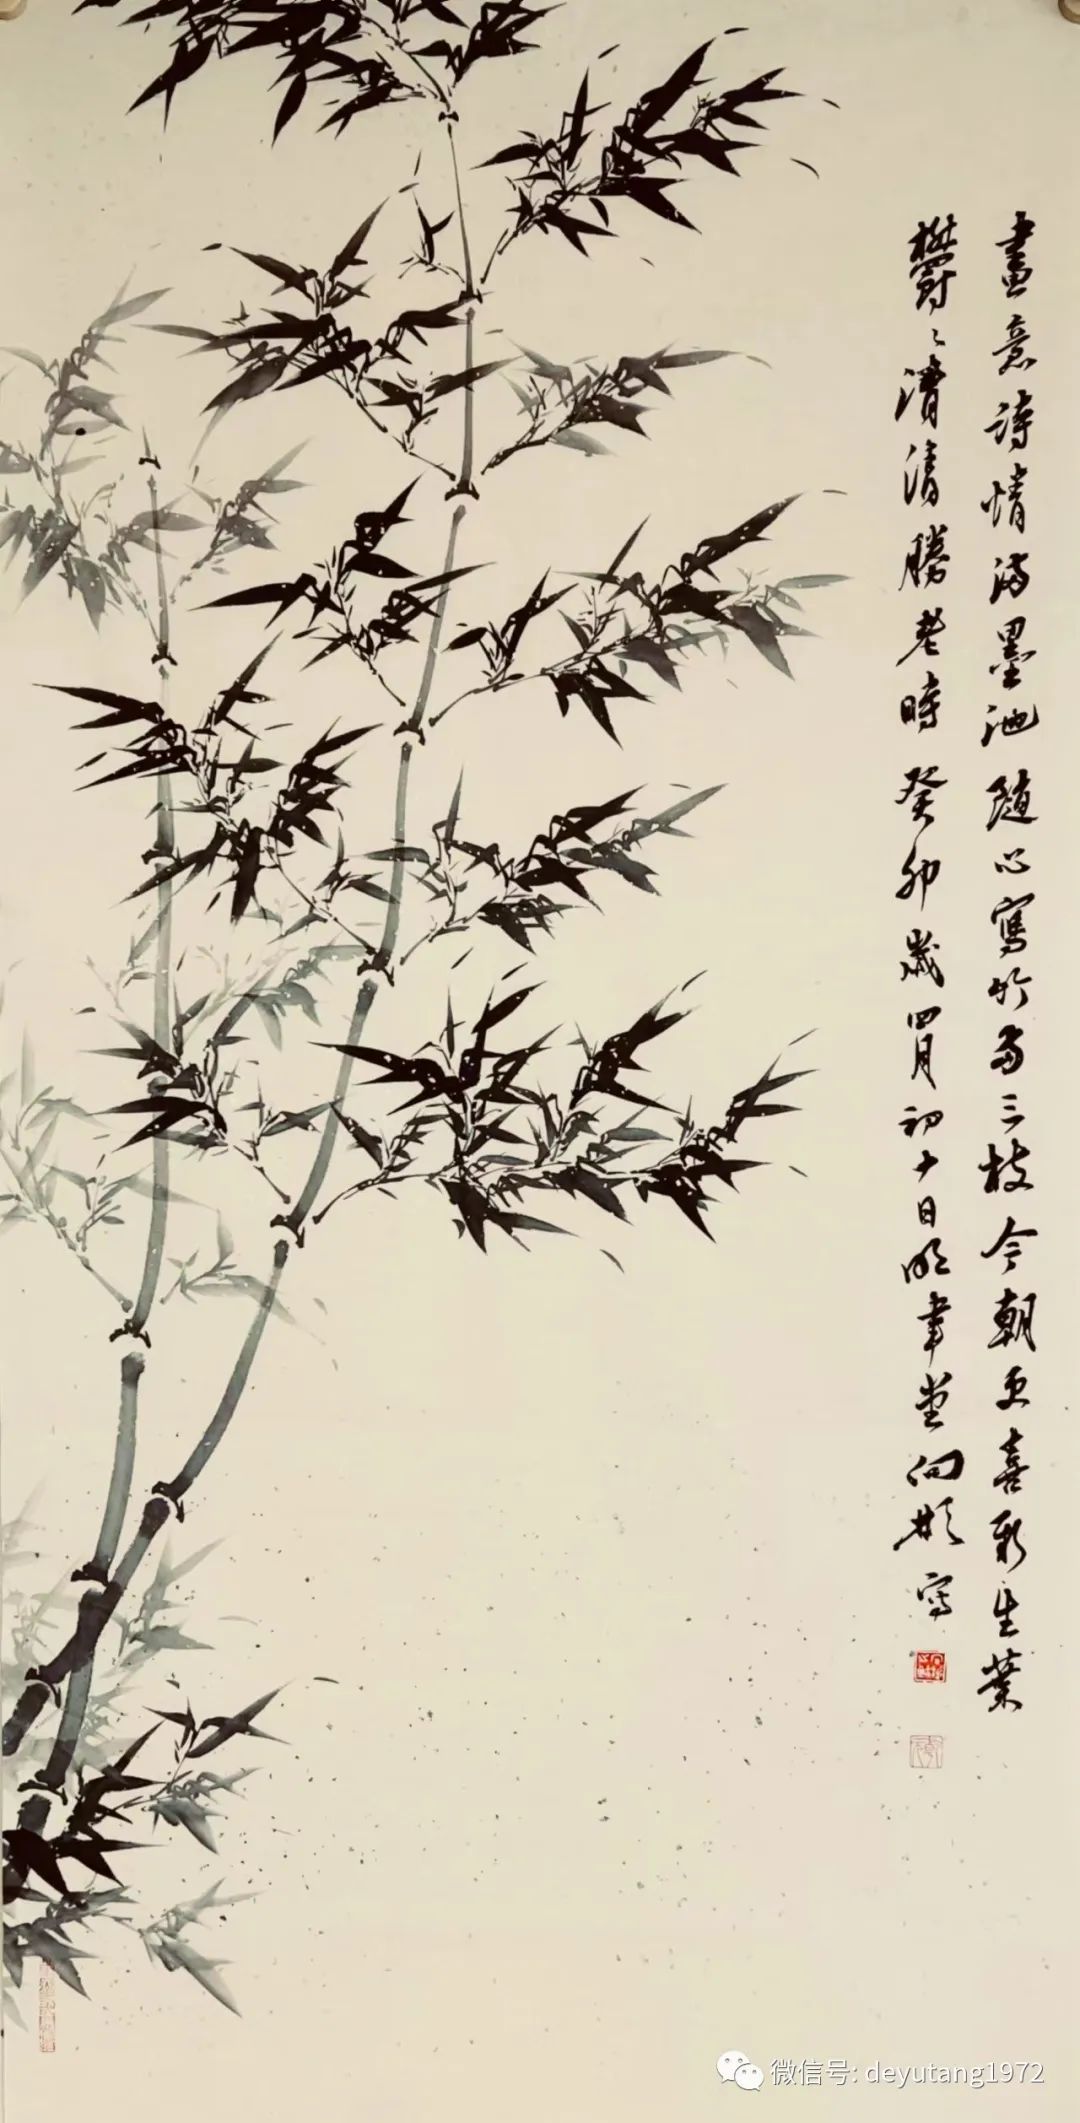 畫意詩情滿墨池隨心寫竹兩三枝今朝更喜新生葉
鬱〻清清勝老時癸卯歲四月初十日明聿堂向彬寫
微信号: deyutang1972